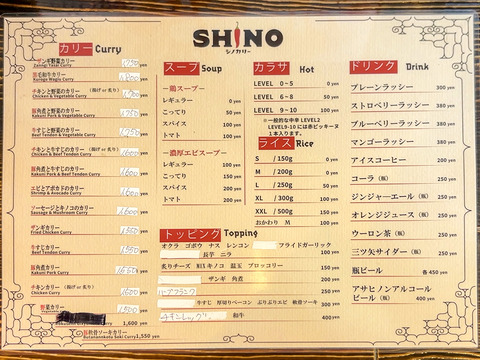 SHINO
シノカリー
カリー Curry
ザンギ野菜カリー
Zannngi Yasai Curry
黒毛和牛カリー
Kuroge Wagyu Curry
チキンと野菜のカリー (揚げ or 炙り)
Chicken & Vegetable Curry
豚角煮と野菜のカリー
Kakuni Pork & Vegetable Curry
1750
牛すじと野菜のカリー
Beef Tendon & Vegetable Curry
1750
チキンと牛すじのカリー (揚げ or 炙り)
Chicken & Beef Tendon Curry
1600
豚角煮と牛すじのカリー
Kakuni Pork & Beef Tendon Curry
1600
エビとアボカドのカリー
Shrimp & Avocado Curry
1600
ソーセージとキノコのカリー
Sausage & Mushroom Curry
1600
ザンギカリー
Fried Chicken Curry
1550
牛すじカリー
Beef Tendon Curry
1550
豚角煮カリー
Kakuni Pork Curry
1650
チキンカリー (揚げ or 炙り)
Chicken Curry
1500
野菜カリー
Vegetable Curry
1500
1,600 yen
豚軟骨ソーキカリー
Butanannkotu Soki Curry 1,550 yen
スープ Soup
－鶏スープ－
レギュラー 0 yen
こってり 50 yen
スパイス 50 yen
トマト 100 yen
－濃厚エビスープ－
レギュラー 100 yen
こってり 150 yen
スパイス 150 yen
トマト 200 yen
カラサ Hot
LEVEL 0～5 0 yen
LEVEL 6～8 50 yen
LEVEL 9～10 100 yen
＊一般的な中辛 LEVEL2
LEVEL9-10 には赤ピッキーヌ
1本入ります。
ライス Rice
S / 150g 0 yen
M / 200g 0 yen
L / 250g 50 yen
XL / 300g 100 yen
XXL / 500g 150 yen
おかわり M 100 yen
トッピング Topping
オクラ ゴボウ ナス レンコン フライドガーリック
長芋 ニラ 100 yen
炙りチーズ NEWキノコ 温玉 ブロッコリー 150 yen
ザンギ 角煮 200 yen
ハーブフランク
牛すじ 厚切りベーコン ぷりぷりエビ 軟骨ソーキ 300 yen
チキンレッグ 和牛 400 yen
ドリンク Drink
プレーンラッシー 300 yen
ストロベリーラッシー 380 yen
ブルーベリーラッシー 380 yen
マンゴーラッシー 380 yen
アイスコーヒー 200 yen
コーラ (瓶) 250 yen
ジンジャーエール (瓶) 250 yen
オレンジジュース (瓶) 250 yen
ウーロン茶 (瓶) 250 yen
三ツ矢サイダー (瓶) 250 yen
瓶ビール 各450 yen
アサヒノンアルコール
ビール (瓶) 400 yen